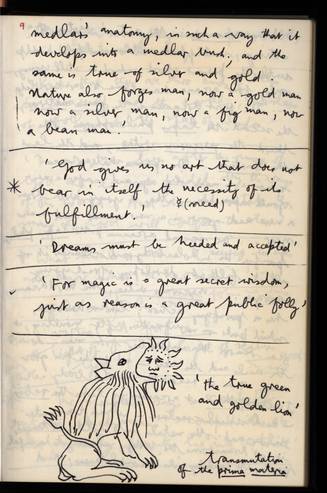 9
medlars' anatomy, in such a way that it
develops into a medlar bud; and the
same is true of silver and gold.
Nature also forges man, now a gold man
now a silver man, now a fig man, now
a bean man.'
'God gives us no art that does not
* bear in itself the necessity of its
fulfillment.' (need)
'Dreams must be heeded and accepted'
'For magic is a great secret wisdom,
just as reason is a great public folly'
'the true green
and golden lion'
transmutation
of the prima materia